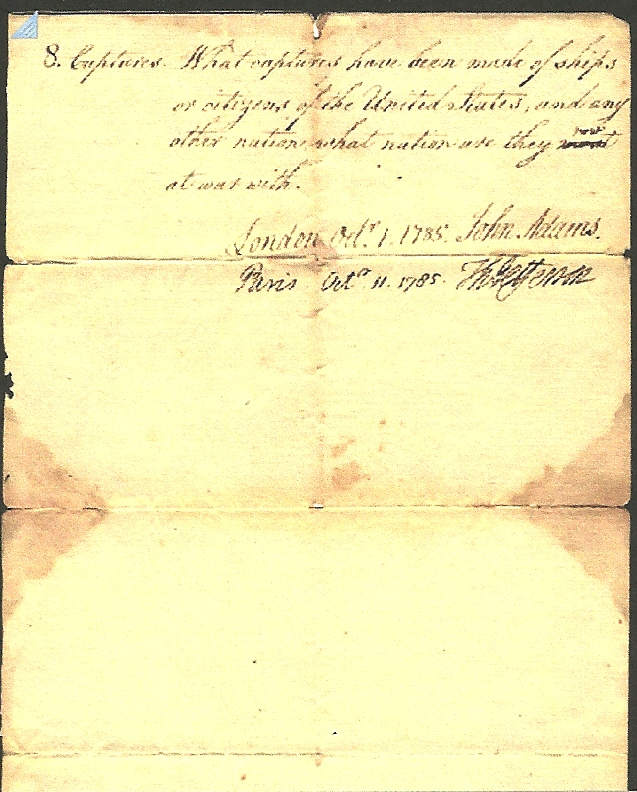 8. Captures. What captures have been made of ships
or citizens of the United States, and any
other nation what nation are they now
at war with.
London Octr. 1. 1785. John Adams.
Paris Octr. 11. 1785. Th: Jefferson